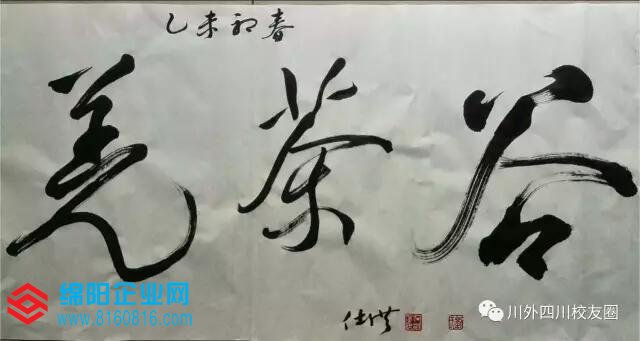 乙未初春
羌茶谷
绵阳企业网
www.8160816.com
川外四川校友圈